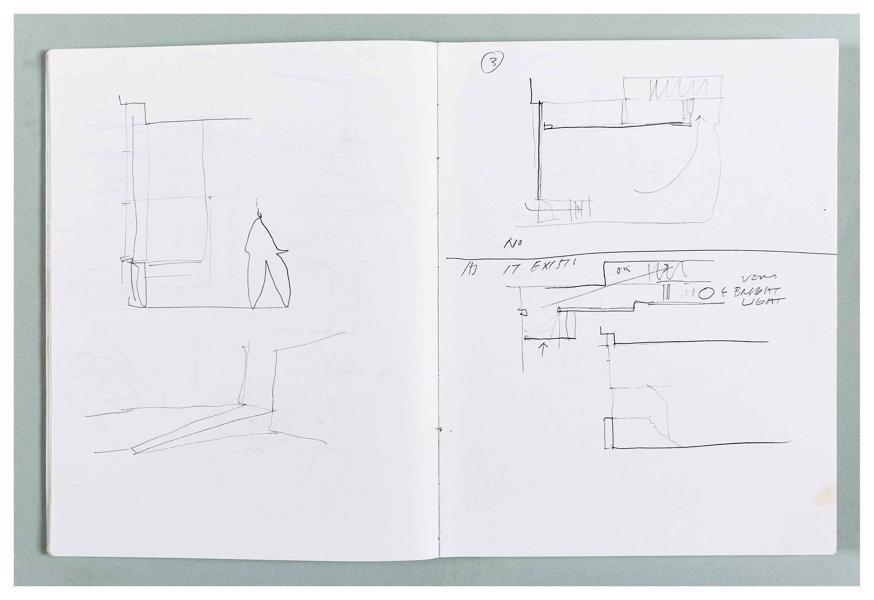 3
NO
AS IT EXISTS
OK
VERY
BRIGHT
LIGHT